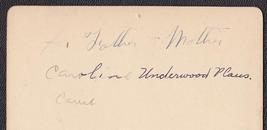 Father & Mother
Caroline Underwood Plaus.